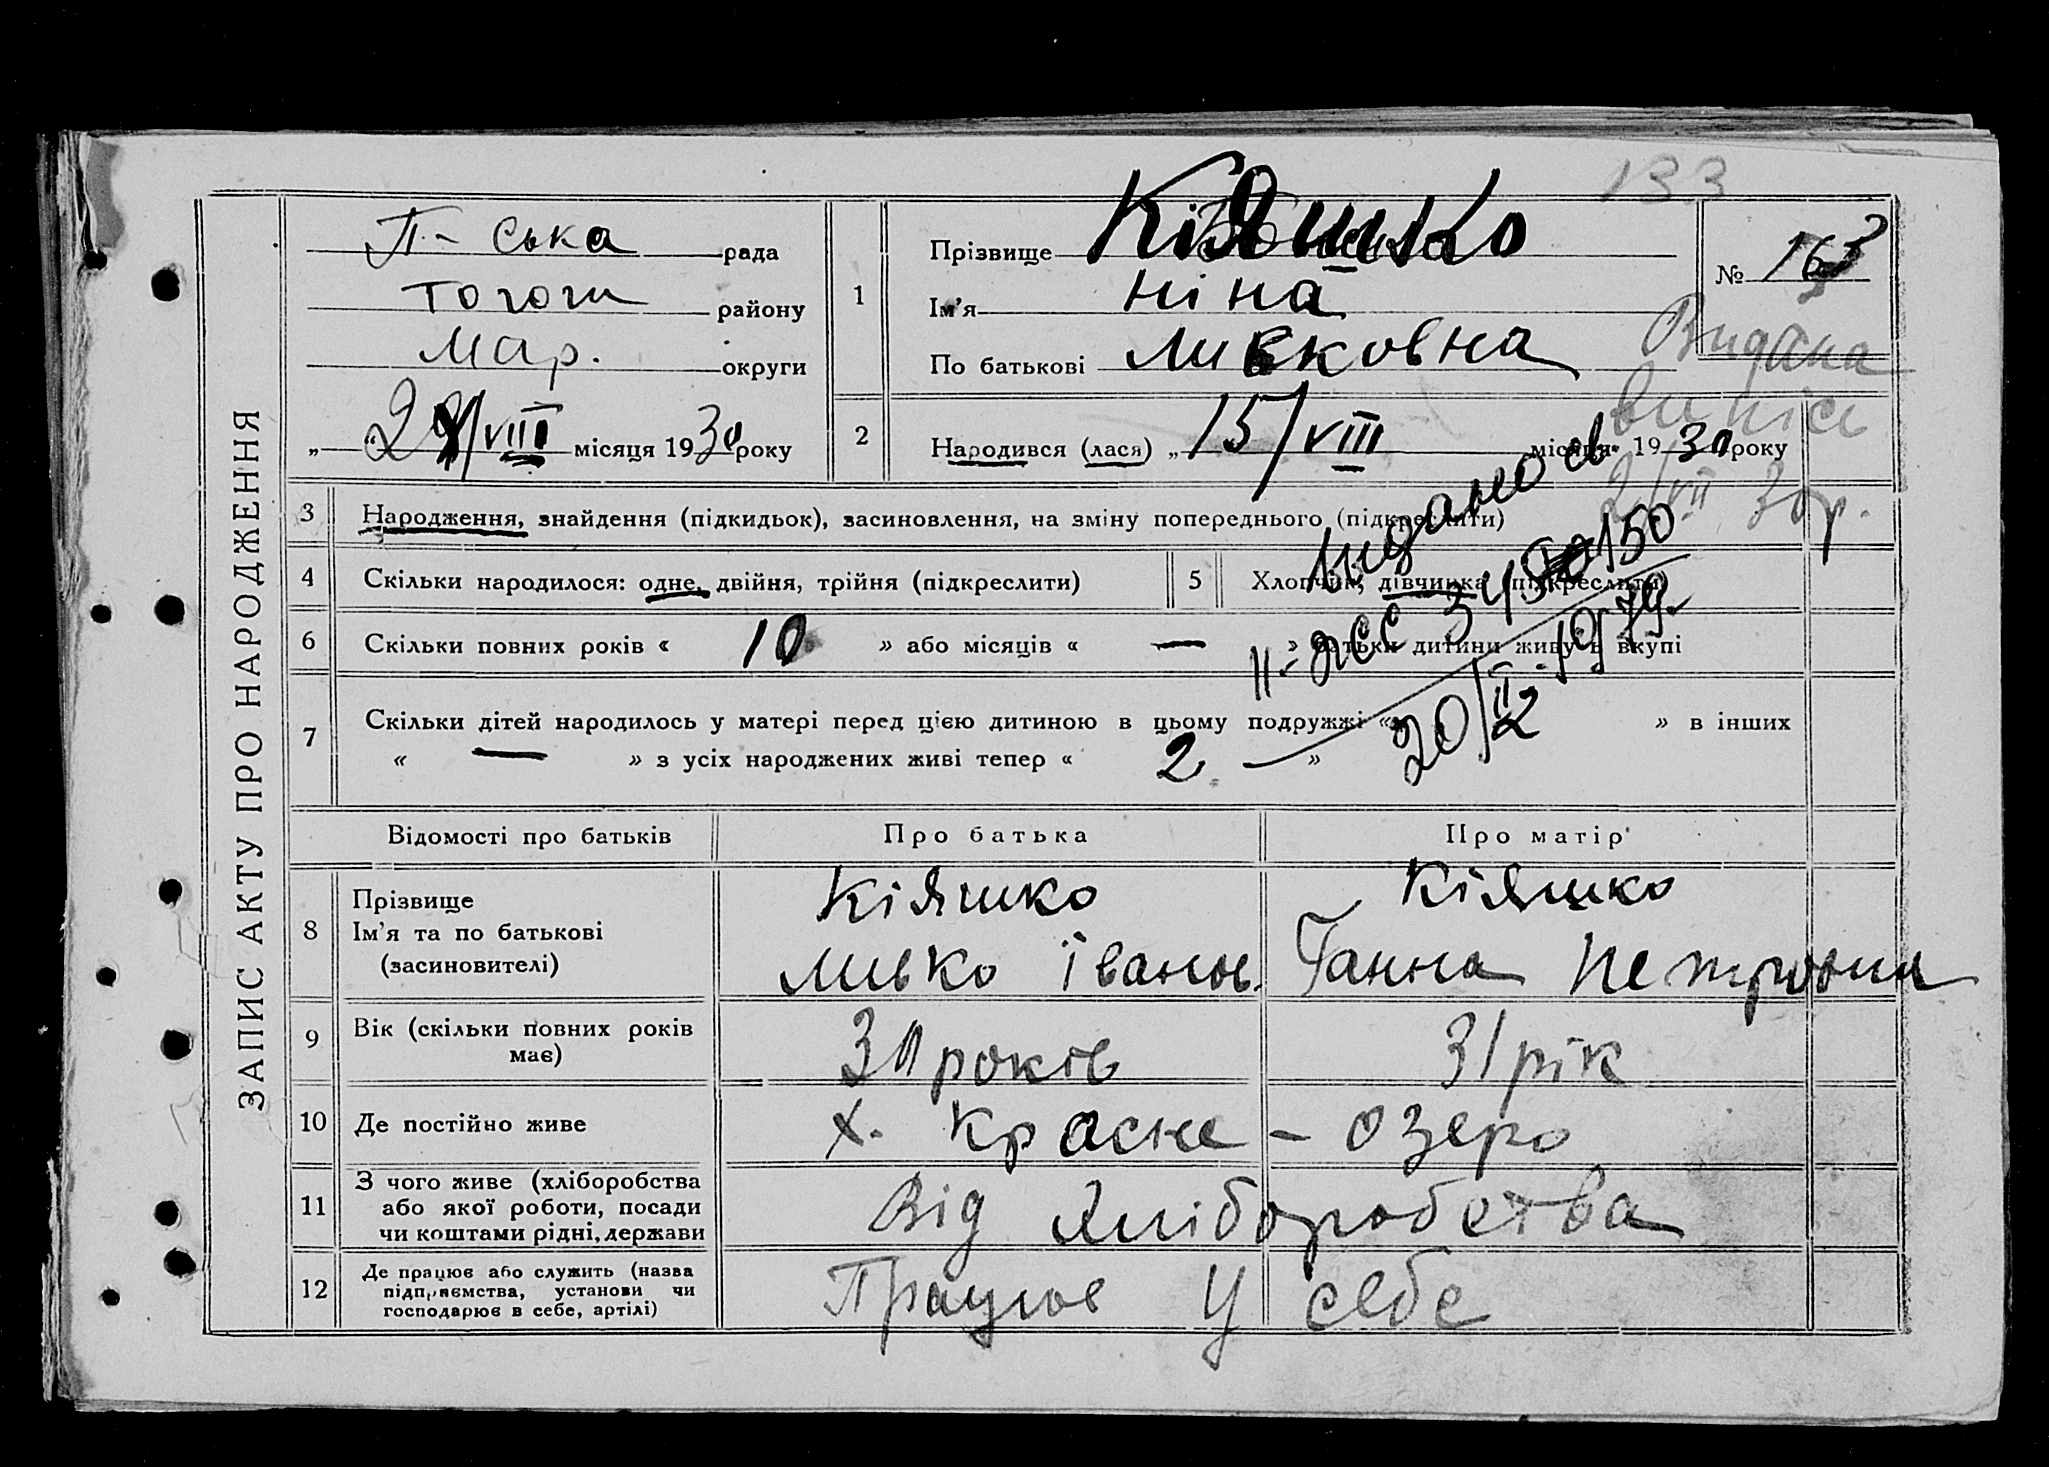 133
ЗАПИС АКТУ ПРО НАРОДЖЕННЯ
П.- ська рада
району
Мар. округи
„ 29/VIII місяця 1930 року
1
Прізвище Кіяшко
Ім'я Ніна
По батькові Мивковна
№ 163
Видана
випись
2/VII 30р.
2
Народився (лася) „ 15/VIII місяця 1930 року
3
Народження, знайдення (підкидьок), засиновлення, на зміну попереднього (підкреслити)
4
Скільки народилося: одне, двійня, трійня (підкреслити)
5
Хлопчик, дівчинка (підкреслити)
6
Скільки повних років « 10 » або місяців « — » батьки дитини живуть вкупі
7
Скільки дітей народилось у матері перед цією дитиною в цьому подружжі « 2 » в інших
« — » з усіх народжених живі тепер « 2 »
Видано св
20/II
Відомості про батьків
Про батька
Про матір
8
Прізвище
Ім'я та по батькові
(засиновителі)
Кіяшко
Мивко Іванов.
Кіяшко
Ганна Петровна
9
Вік (скільки повних років
має)
30 років
31 рік
10
Де постійно живе
х. Красне - озеро
11
З чого живе (хліборобства
або якої роботи, посади
чи коштами рідні, держави
Від хліборобства
12
Де працює або служить (назва
підприємства, установи чи
господарює в себе, артілі)
Працює у себе